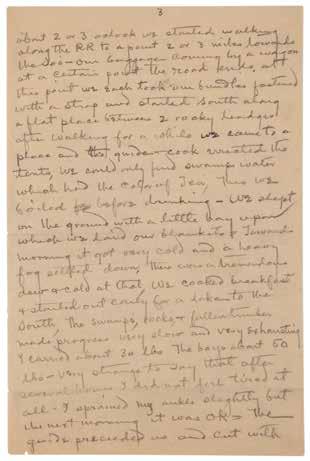 3
about 2 or 3 oclock we started walking
along the RR to a point 2 or 3 miles towards
the Soo - our baggage coming by a wagon
at a certain point the road ends. at
this point we each took our bundles fastened
with a strap and started South along
a flat place between 2 rocky
after walking for a while we came to a
place and the guide & cook erected the
tents, we could only find swamp water
which had the color of Tea, This we
boiled before drinking - We slept
on the ground with a little hay upon
which we laid our blankets - Towards
morning it got very cold and a heavy
fog settled down, There was a tremendous
dew & cold at that, We cooked breakfast
& started out early for a lake to the
South. The swamps, rocks & fallen timber
made progress very slow and very exhausting
I carried about 30 lbs The boys about 50
lbs - very strange to say that after
several hours I did not feel tired at
all - I sprained my ankle slightly but
the next morning it was OK = The
guide preceeded us and cut with